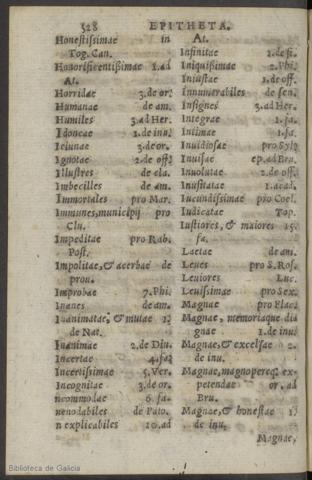 528 EPITHETA.
Honestissimae in
Tog. Can.
Honorificentissimae 1. ad
At.
Horridae 3. de or.
Humanae de am.
Humiles 3. ad Her.
Idoneae 1. de inu.
Ieiunae 3. de or.
Ignotae 2. de off.
Illustres de cla.
Imbecilles de am.
Immortales pro Mar.
Immunes, municipij pro
Clu.
Impeditae pro Rab.
Post.
Impolitae, & acerbae de
prou.
Improbae 7. Phi.
Inanes de am.
Inanimatae, & mutae 1.
de Nat.
Inanimae 2. de Diu.
Incertae 4. fa.
Incertissimae 5. Ver.
Incognitae 3. de or.
ncommodae 6. fa.
nenodabiles de Fato.
n explicabiles 10. ad
At.
Infinitae 1. de fi.
Iniquissimae 2. Phi.
Iniustae 1. de off.
Innumerabiles de sen.
Insignes 3. ad Her.
Integrae 1. fa.
Intimae 1. fa.
Inuidiosae pro Syl.
Inuisae ep. ad Bru.
Inuolutae 2. de off.
Inusitatae 1. acad.
Iucundissimae pro Coel.
Iudicatae Top.
Iustiores, & maiores 15.
fa.
Laetae de am.
Leues pro S. Ros.
Leuiores Luc.
Leuissimae pro Sex.
Magnae pro Flac.
Magnae, memoriaque di
gnae 1. de inu.
Magnae, & excelsae 2.
de inu.
Magnae, magnopereq; ex-
petendae or. ad
Bru.
Magnae, & honestae 1.
de inu.
Magnae,
Biblioteca de Galicia